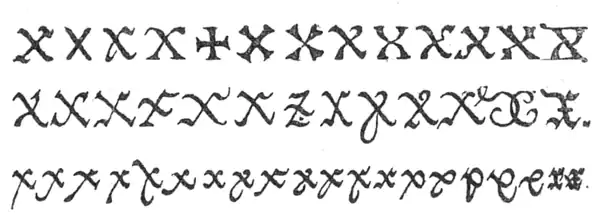 X X X X X X X X X X X X X
X X X X X X X X X X X X X.
x x x x x x x x x x x x x x x x x x x.